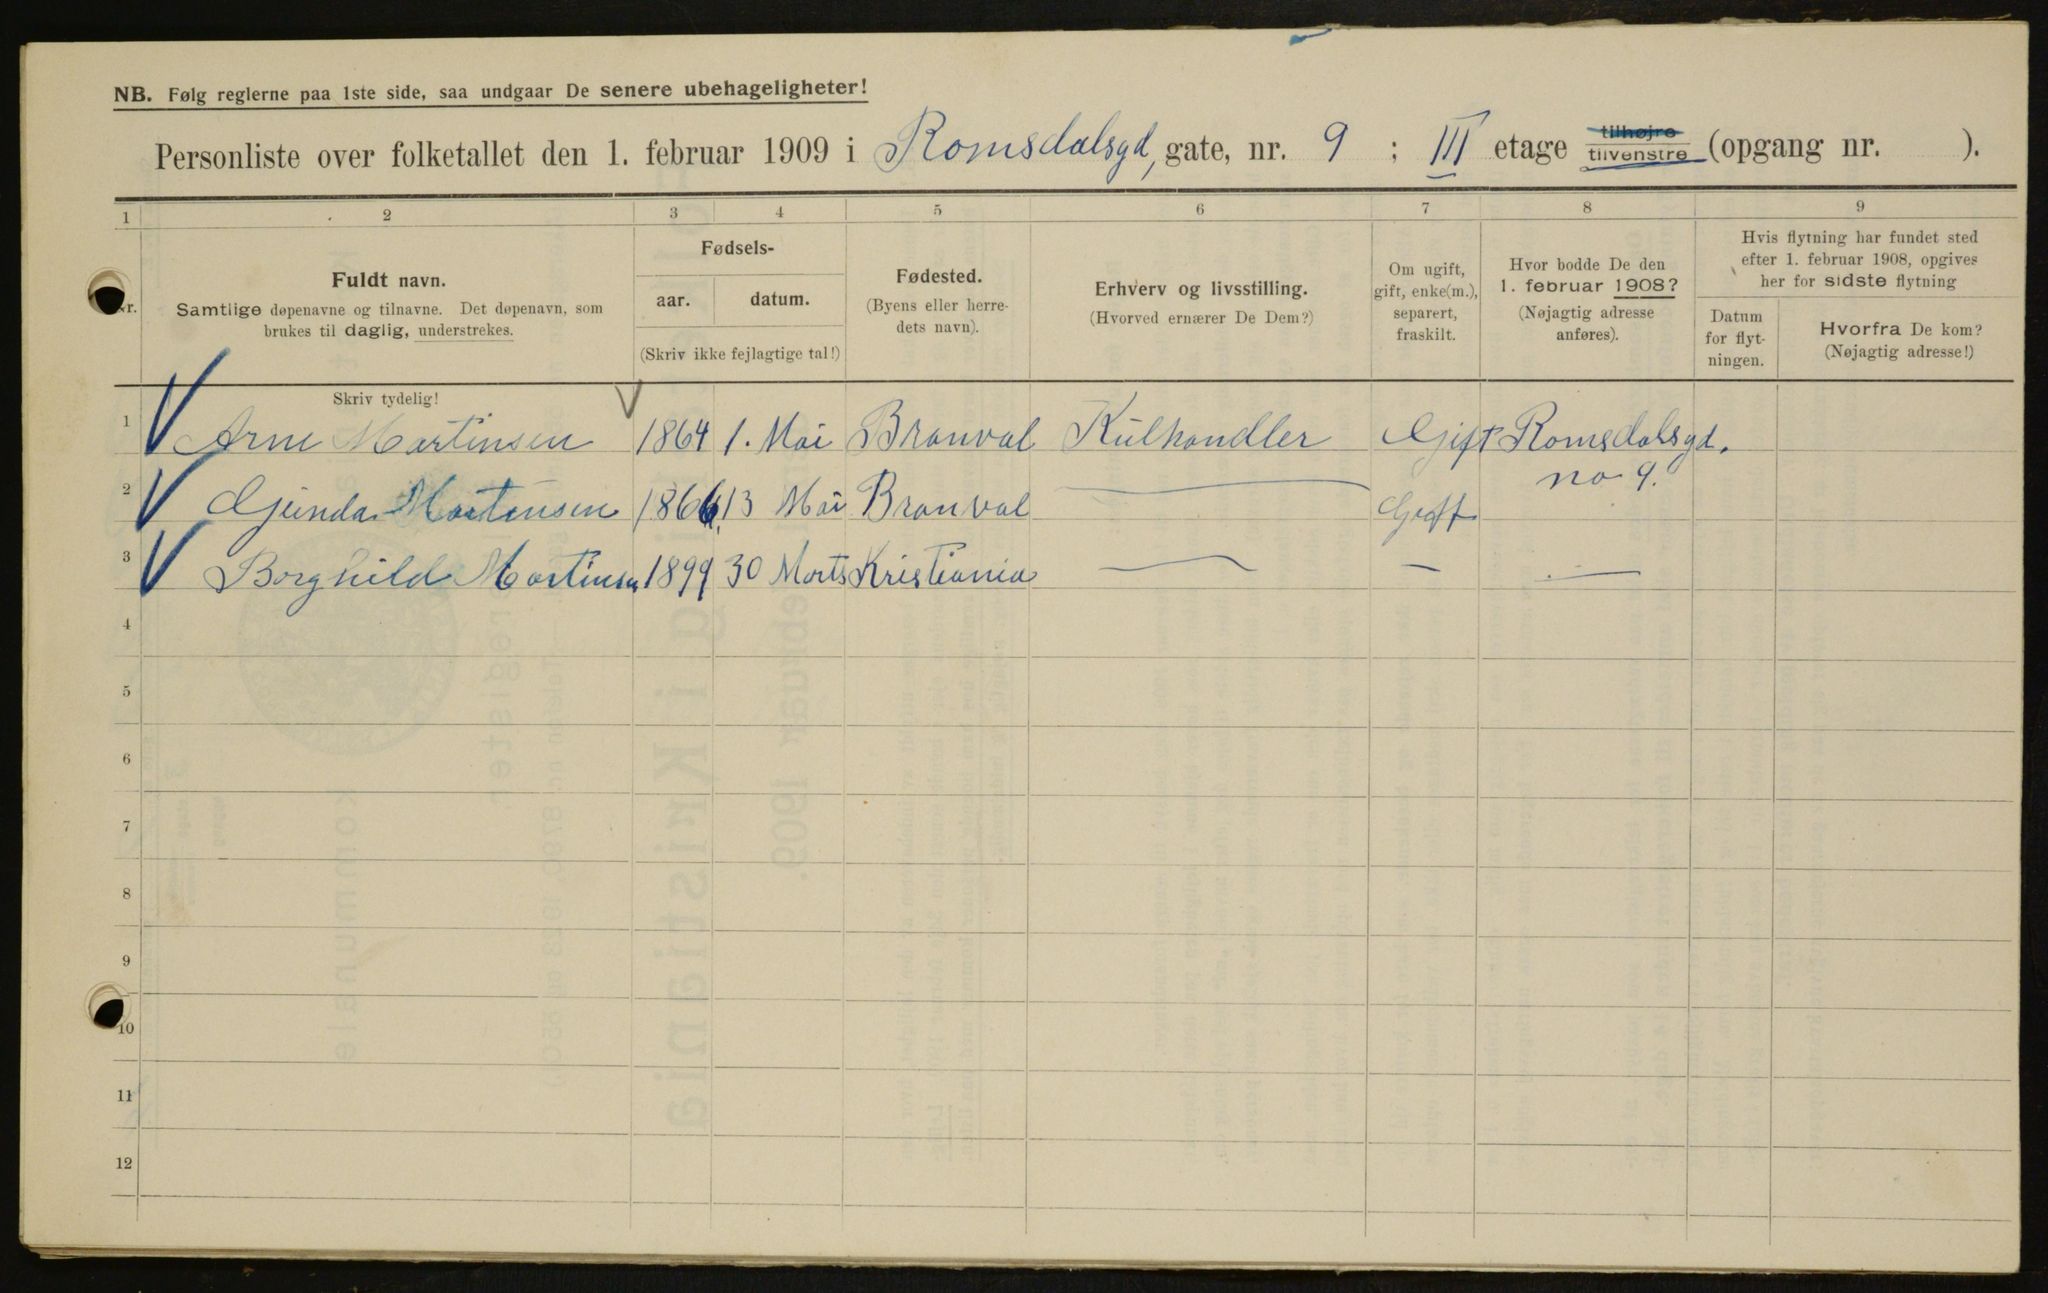 NB. Følg reglerne paa 1ste side, saa undgaar De senere ubehageligheter!
Personliste over folketallet den 1. februar 1909 i Romsdalsgd, gate, nr. 9 ; III etage tilhøjre tilvenstre (opgang nr. ).
1 2 3 4 5 6 7 8 9
Nr.
Fuldt navn.
Samtlige døpenavne og tilnavne. Det døpenavn, som
brukes til daglig, understrekes.
Skriv tydelig!
Fødsels-
aar. datum.
(Skriv ikke fejlagtige tal!)
Fødested.
(Byens eller herre-
dets navn).
Erhverv og livsstilling.
(Hvorved ernærer De Dem?)
Om ugift,
gift, enke(m.),
separert,
fraskilt.
Hvor bodde De den
1. februar 1908?
(Nøjagtig adresse
anføres).
Hvis flytning har fundet sted
efter 1. februar 1908, opgives
her for sidste flytning
Datum
for flyt-
ningen.
Hvorfra De kom?
(Nøjagtig adresse!)
1 Arne Martinsen 1864 1. Mai Branval Kulhandler Gift Romsdalsgd.
no 9.
2 Gunda Martinsen 1866 13 Mai Branval — Gift
3 Borghild Martinsen 1899 30 Marts Kristiania — — —
4
5
6
7
8
9
10
11
12